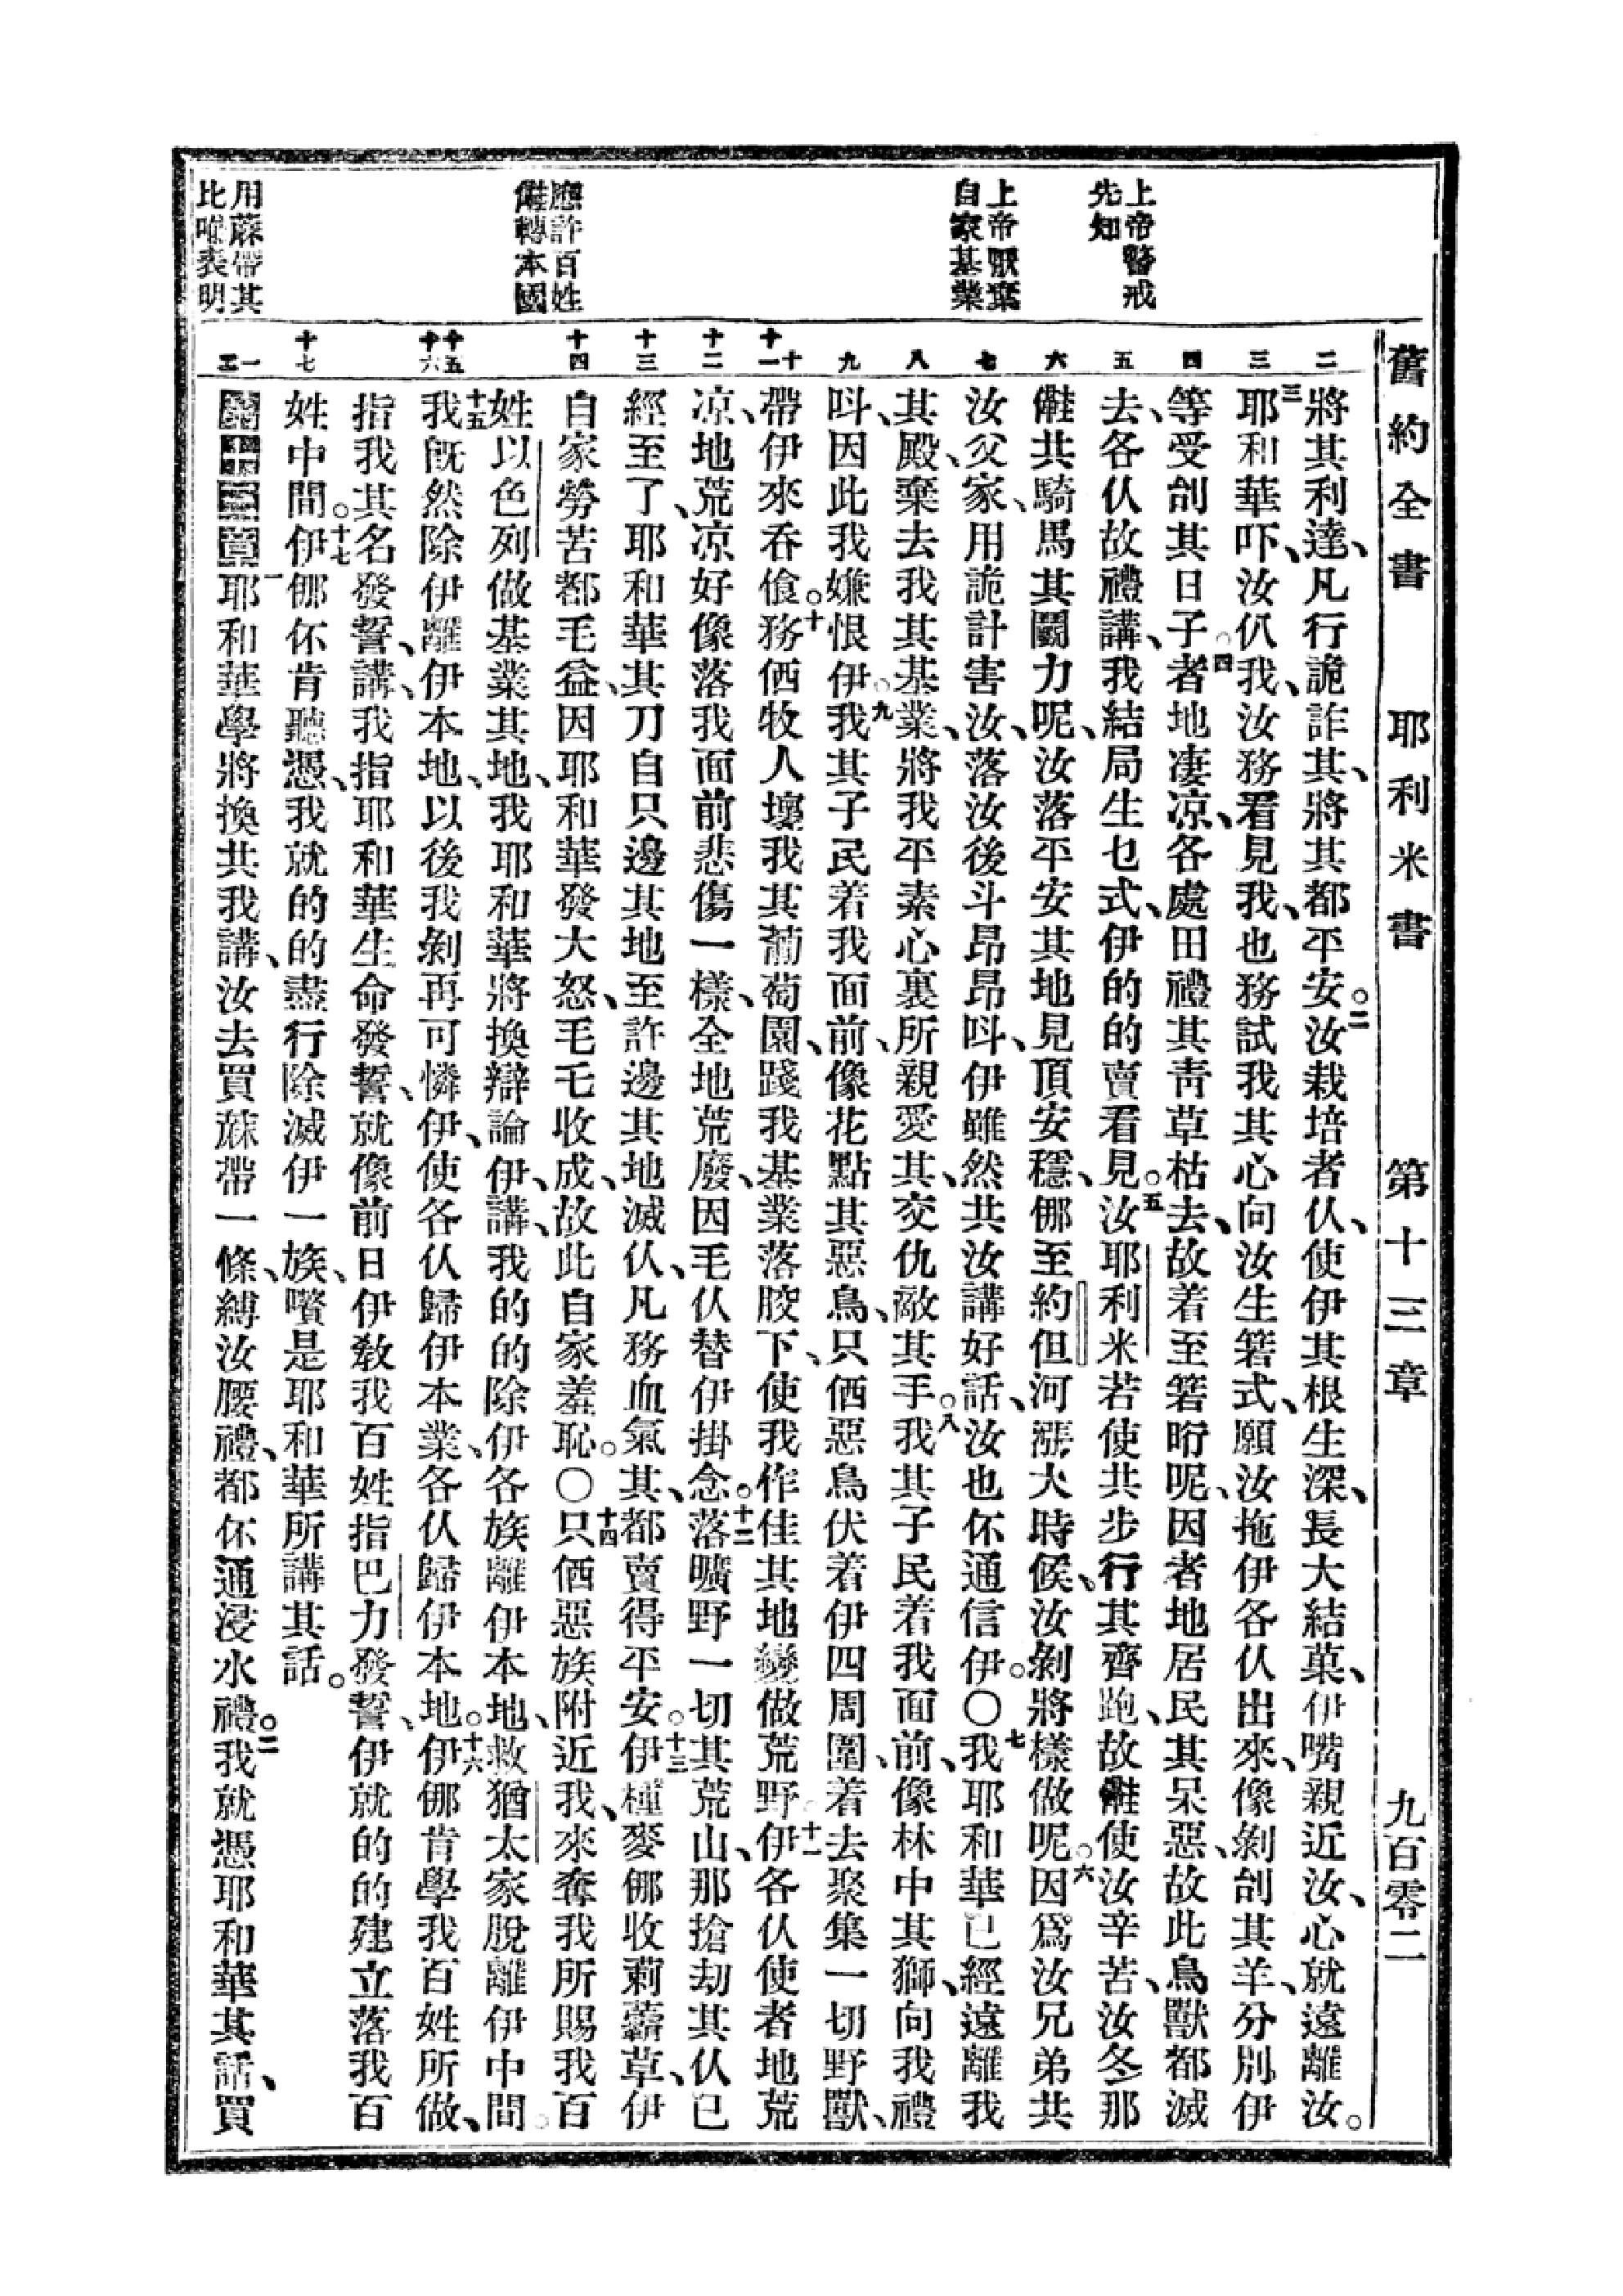 舊約全書 耶利米書 第十三章 九百零二
上帝警戒
先知
上帝厭棄
自家基業
應許百姓
轉本國
用蔴帶其
比喻表明
二 三 四 五 六 七 八 九 十 十一 十二 十三 十四 十五 十六 十七 一 二
將其利達、凡行詭詐其、將其都平安。二汝栽培者仈、使伊其根生深、長大結菓、伊嘴親近汝、心就遠離汝。
三耶和華吓、汝仈我、汝務看見我、也務試我其心向汝生箬式、願汝拖伊各仈出來、像剝刣其羊、分別伊
等受刣其日子。四者地凄凉、各處田禮其靑草枯去、故着至箬時呢、因者地居民其呆惡、故此鳥獸都滅
去、各仈故禮講、我結局生乜式、伊的的賣看見。五汝耶利米若使共步行其齊跑、故使汝辛苦、汝冬那
共騎馬其鬭力呢、汝落平安其地見頂安穩、倻至約但河漲大時候、汝剝將樣做呢。六因爲汝兄弟共
汝父家、用詭計害汝、落汝後斗昂昂呌、伊雖然共汝講好話、汝也伓通信伊。〇七我耶和華已經遠離我
其殿、棄去我其基業、將我平素心裏所親愛其、交仇敵其手。八我其子民着我面前、像林中其獅、向我禮
呌、因此我嫌恨伊。九我其子民着我面前、像花點其惡鳥、只仾惡鳥伏着伊四周圍、着去聚集一切野獸、
帶伊來吞飡。十務仾牧人壞我其葡萄園、踐我基業落骹下、使我作佳其地變做荒野。十一伊各仈使者地荒
凉、地荒凉好像落我面前悲傷一樣、全地荒廢、因毛仈替伊掛念。十二落曠野一切其荒山、那搶刧其仈已
經至了、耶和華其刀自只邊其地、至許邊其地滅仈、凡務血氣其、都賣得平安。十三伊種麥倻收莿藟草、伊
自家勞苦都毛益、因耶和華發大怒、毛乇收成、故此自家羞恥。〇十四只仾惡族附近我、來奪我所賜我百
姓以色列做基業其地、我耶和華將換辯論伊、講、我的的除伊各族離伊本地、救猶太家脫離伊中間。
十五我旣然除伊離伊本地、以後我剝再可憐伊、使各仈歸伊本業、各仈歸伊本地。十六伊倻肯學我百姓所做、
指我其名發誓、講、我指耶和華生命發誓、就像前日伊敎我百姓指巴力發誓、伊就的的建立落我百
姓中間。十七伊倻伓肯聽憑、我就的的盡行除滅伊一族、嚽是耶和華所講其話。
第十三章一耶和華學將換共我講、汝去買蔴帶一條、縛汝腰禮、都伓通浸水禮。二我就憑耶和華其話、買